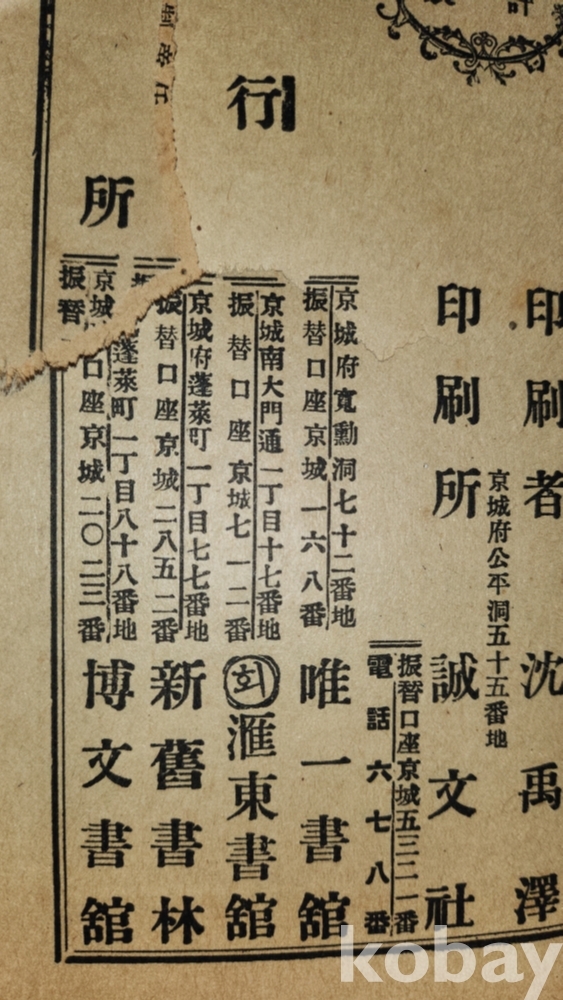 計
印刷者 沈禹澤
京城府公平洞五十五番地
印刷所 誠文社
振替口座京城五三二一番
電話六七八番
行
所
京城府寬勳洞七十二番地
振替口座京城一六八番
唯一書舘
京城南大門通一丁目十七番地
振替口座京城七一二番
회
滙東書舘
京城府蓬萊町一丁目七七番地
振替口座京城二八五二番
新舊書林
京城 蓬萊町一丁目八十八番地
振替口座京城二〇二三番
博文書舘
kobay